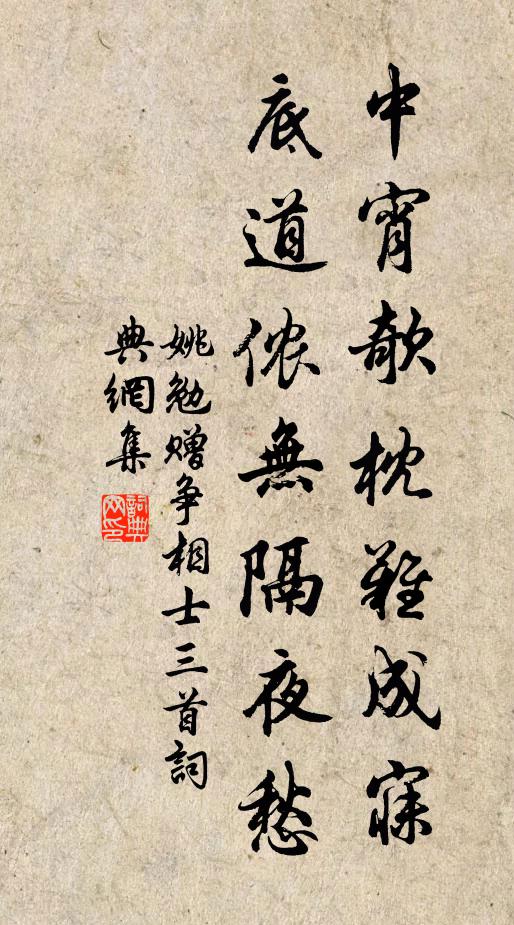 中宵欹枕難成寐
底道儂無隔夜愁
姚勉贈爭相士三首詞
典網集
詞典網印